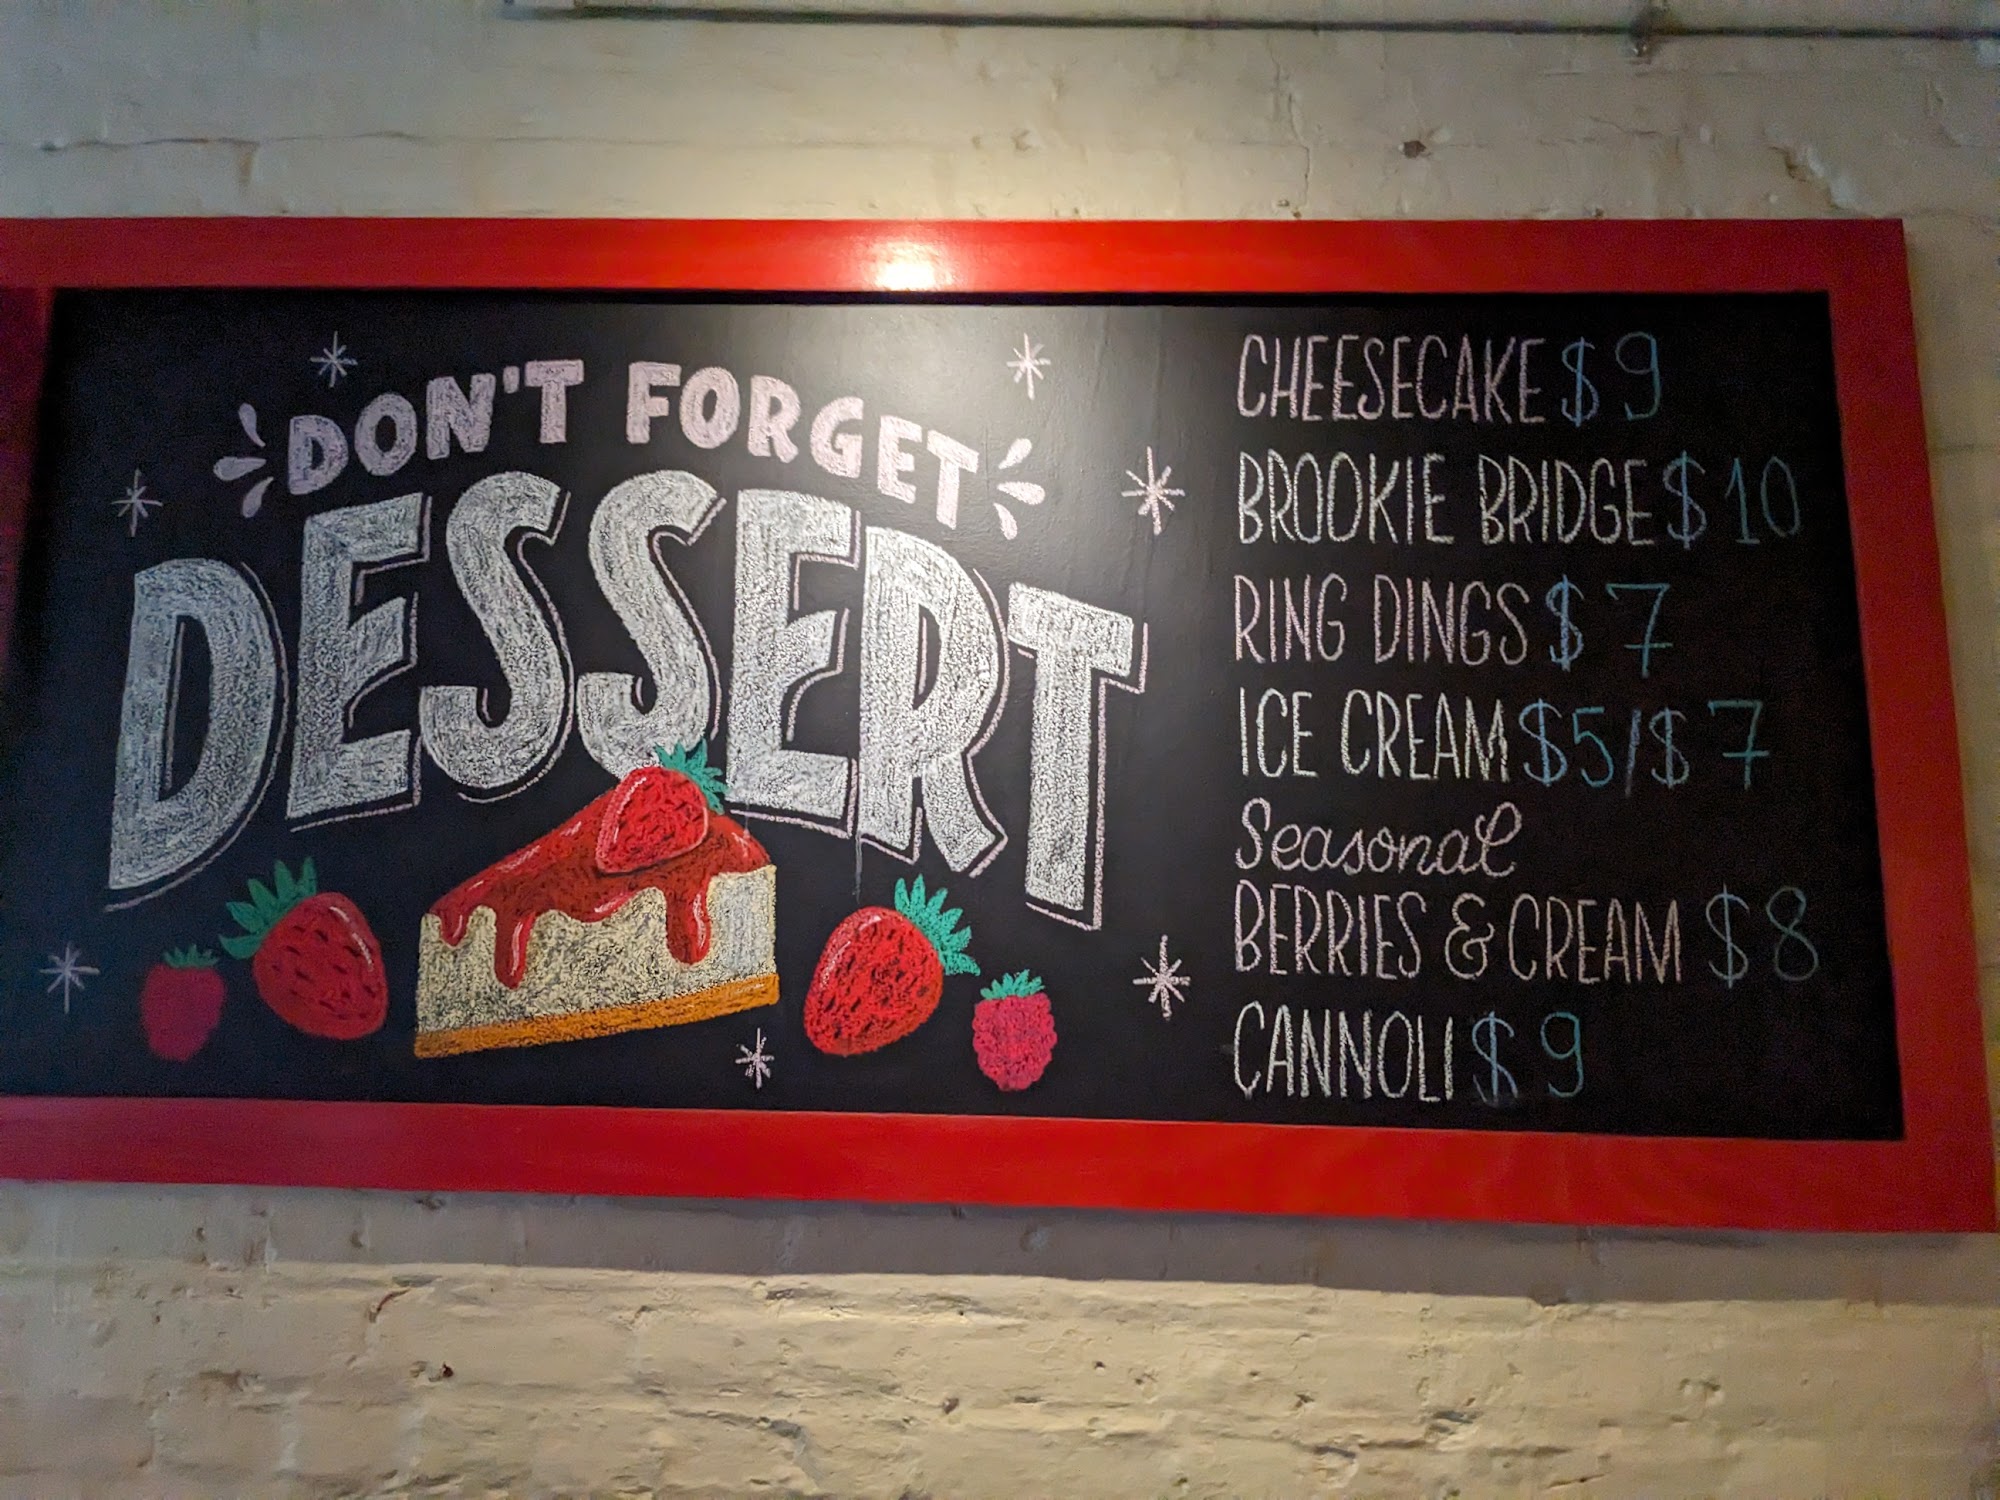 DON'T FORGET
DESSERT
CHEESECAKE $9
BROOKIE BRIDGE $10
RING DINGS $7
ICE CREAM $5/$7
Seasonal
BERRIES & CREAM $8
CANNOLI $9